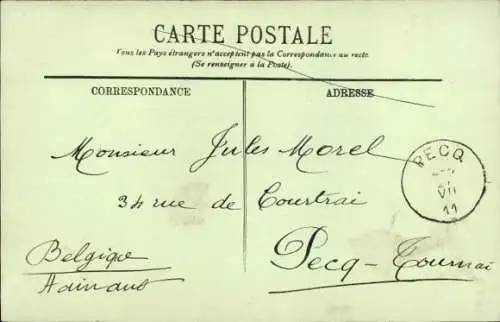 CARTE POSTALE
Tous les Pays étrangers n'acceptent pas la Correspondance au recto.
(Se renseigner à la Poste).
CORRESPONDANCE
ADRESSE
Monsieur Jules Morel
34 rue de Courtrai
Pecq-Tournai
Belgique
Hainaut
PECQ
VII
11